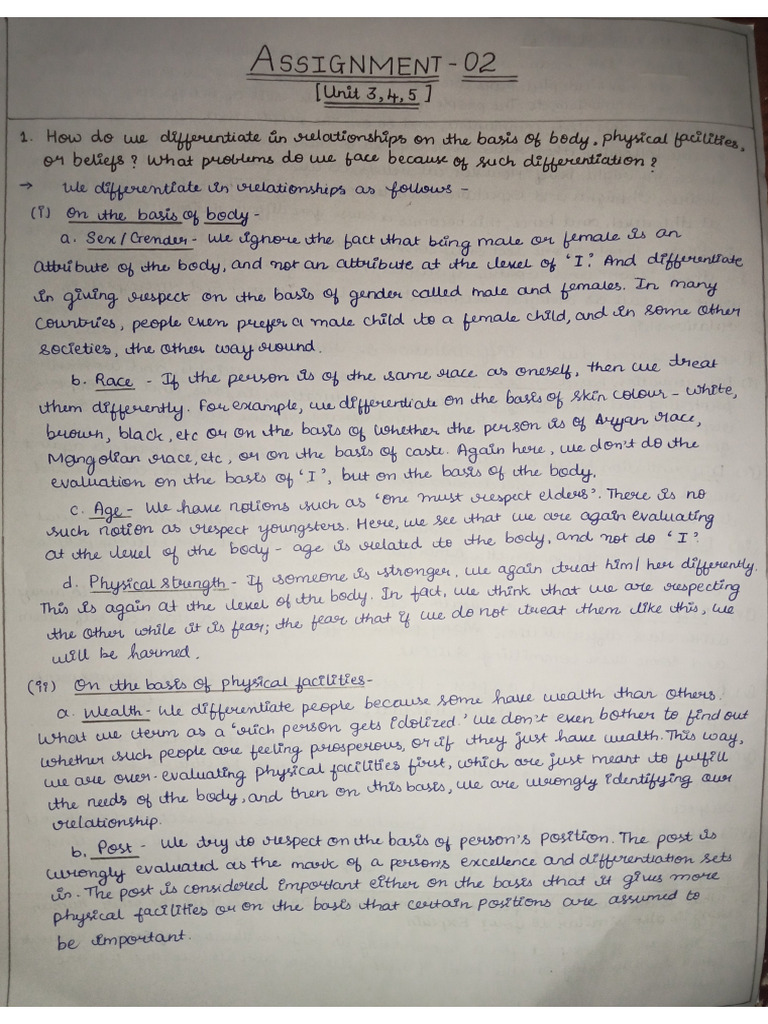 ASSIGNMENT - 02
[Unit 3, 4, 5]
1. How do we differentiate in relationships on the basis of body, physical facilities,
or beliefs? What problems do we face because of such differentiation?
→ We differentiate in relationships as follows -
(i) On the basis of body -
a. Sex/Gender - We ignore the fact that being male or female is an
attribute of the body, and not an attribute at the level of 'I'. And differentiate
in giving respect on the basis of gender called male and females. In many
countries, people even prefer a male child to a female child, and in some other
societies, the other way round.
b. Race - If the person is of the same race as oneself, then we treat
them differently. For example, we differentiate on the basis of skin colour - white,
brown, black, etc or on the basis of whether the person is of Aryan race,
Mongolian race, etc, or on the basis of caste. Again here, we don't do the
evaluation on the basis of 'I', but on the basis of the body.
c. Age - We have notions such as 'one must respect elders'. There is no
such notion as respect youngsters. Here, we see that we are again evaluating
at the level of the body - age is related to the body, and not do 'I'.
d. Physical strength - If someone is stronger, we again treat him/her differently.
This is again at the level of the body. In fact, we think that we are respecting
the other while it is fear; the fear that if we do not treat them like this, we
will be harmed.
(ii) On the basis of physical facilities -
a. Wealth - We differentiate people because some have wealth than others.
What we term as a 'rich person gets idolized.' We don't even bother to find out
whether such people are feeling prosperous, or if they just have wealth. This way,
we are over-evaluating physical facilities first, which are just meant to fulfill
the needs of the body, and then on this basis, we are wrongly identifying our
relationship.
b. Post - We try to respect on the basis of person's position. The post is
wrongly evaluated as the mark of a person's excellence and differentiation sets
in. The post is considered important either on the basis that it gives more
physical facilities or on the basis that certain positions are assumed to
be important.